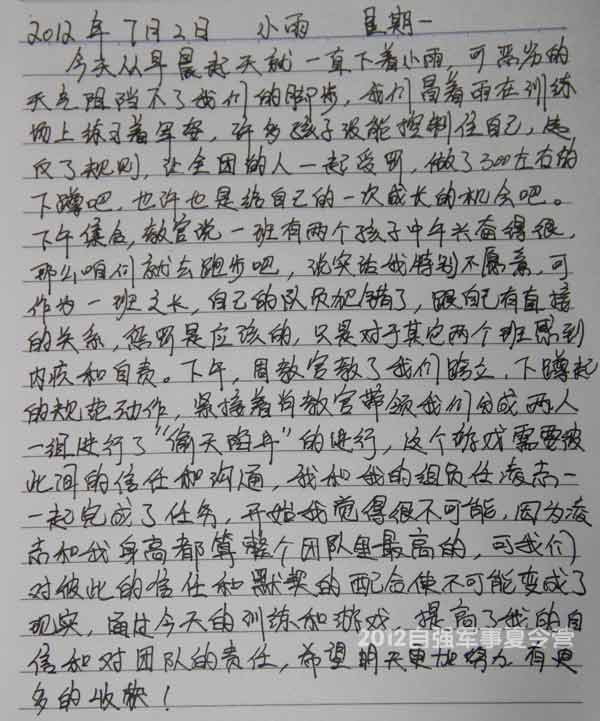 2012年7月2日 小雨 星期一
今天从早晨起天就一直下着小雨，可恶劣的
天气阻挡不了我们的脚步，我们冒着雨在训练
场上练习着军姿，许多孩子没能控制住自己，违
反了规则，让全团的人一起受罚，做了300左右的
下蹲吧，也许也是给自己的一次成长的机会吧。
下午集合，教官说一班有两个孩子中午兴奋得很，
那么咱们就去跑步吧，说实话我特别不愿意，可
作为一班之长，自己的队员犯错了，跟自己有直接
的关系，惩罚是应该的，只是对于其它两个班感到
内疚和自责。下午，周教官教了我们跨立，下蹲起
的规范动作，紧接着肖教官带领我们分成两人
一组进行了“偷天陷井”的进行，这个游戏需要彼
此间的信任和沟通，我和我的组员任凌志一
一起完成了任务，开始我觉得很不可能，因为凌
志和我身高都算整个团队里最高的，可我们
对彼此的信任和默契的配合使不可能变成了
现实，通过今天的训练和游戏，提高了我的自
信和对团队的责任，希望明天更加努力有更
多的收获！
2012自强军事夏令营